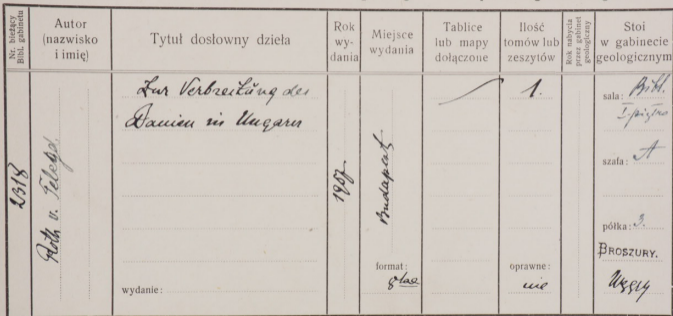 Nr. bieżący
Bibl. gabinetu
Autor
(nazwisko
i imię)
Tytuł dosłowny dzieła
Rok
wy-
dania
Miejsce
wydania
Tablice
lub mapy
dołączone
Ilość
tomów lub
zeszytów
Rok nabycia
przez gabinet
geologiczny
Stoi
w gabinecie
geologicznym
2318
Roth v. Telegd.
Zur Verbreitung des
Danien in Ungarn
wydanie:
1907
Budapest
format:
8
1.
oprawne:
nie
sala: Bibl.
I piętro
szafa: A
półka: 3.
BROSZURY.
Węgry